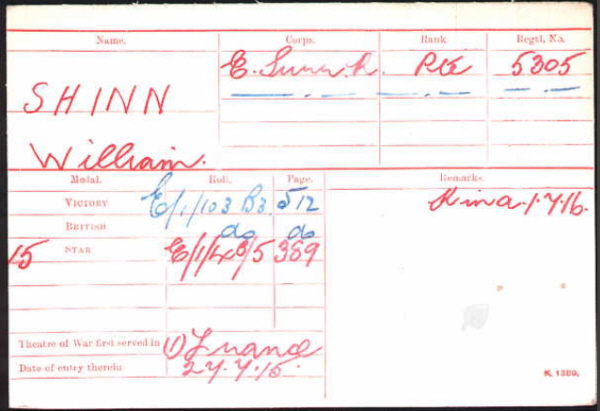 Name. Corps. Rank. Regtl. No.
E. Surr. R. Pte 5305
SHINN
William.
Medal. Roll. Page. Remarks.
VICTORY E/1/103 B3 512 K in a. 1.7.16.
BRITISH do do
15 STAR 389
Theatre of War first served in (1) France
Date of entry therein 27.7.15.
K. 1380.